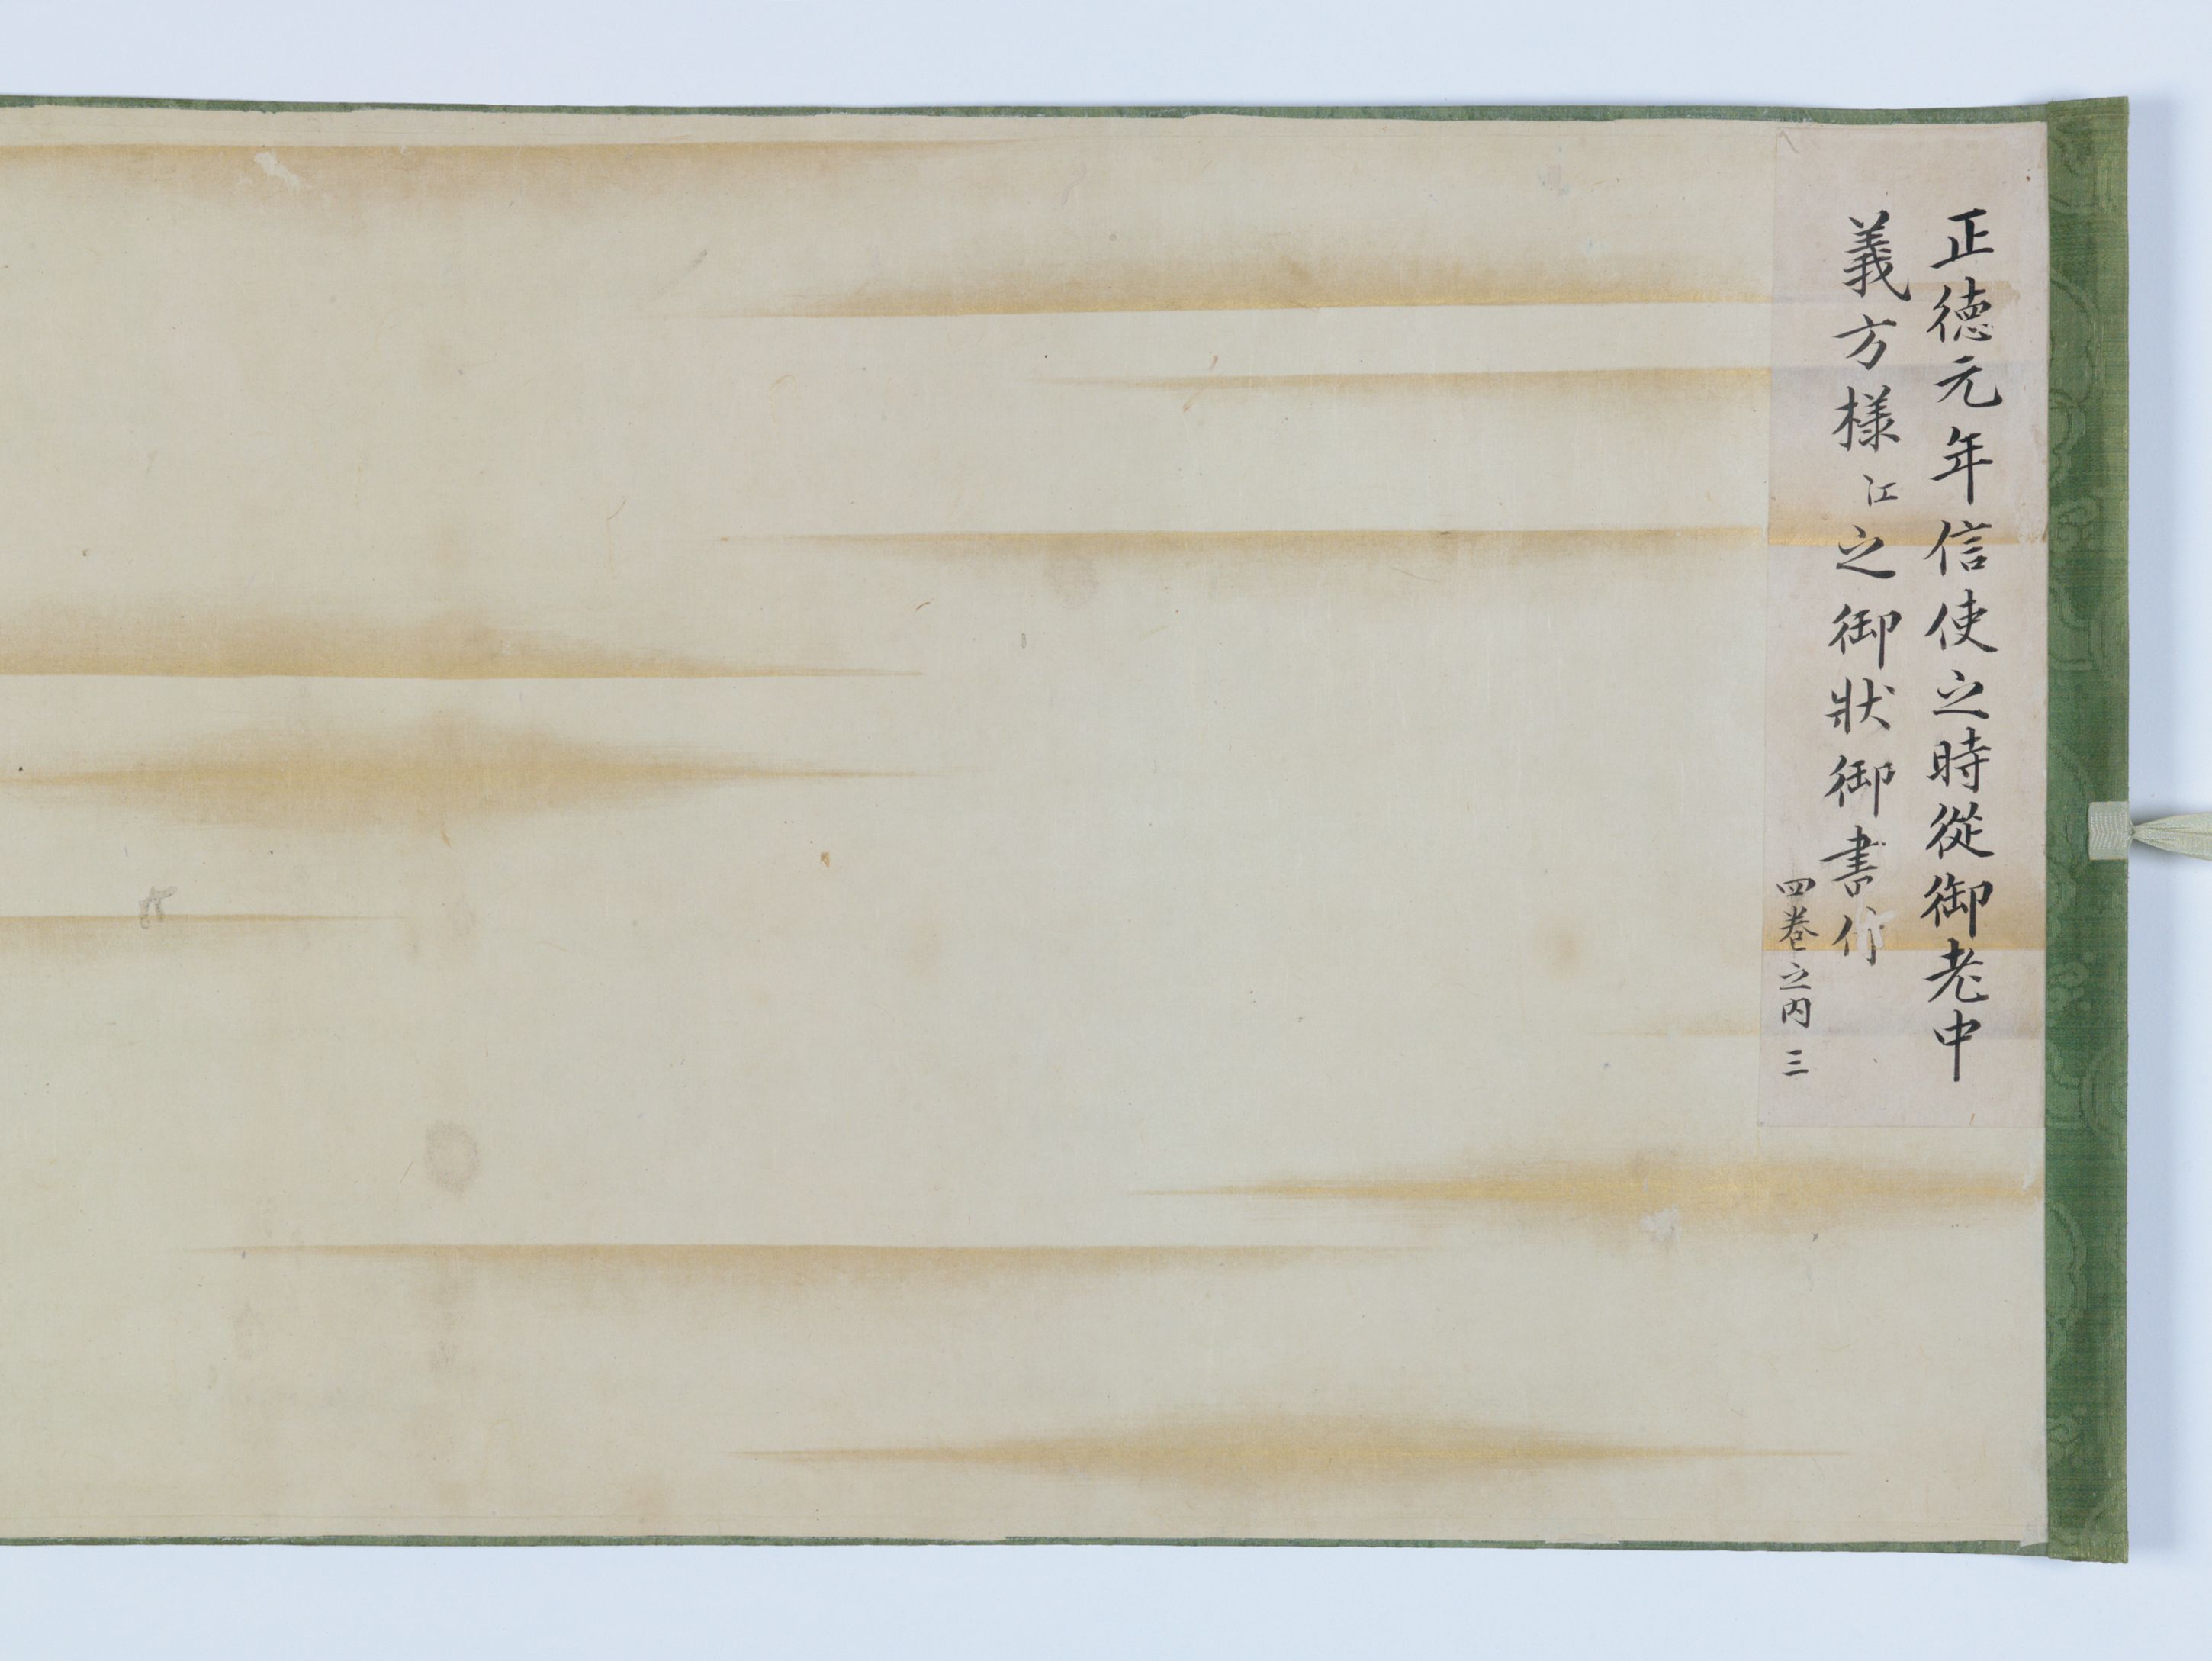 正徳元年信使之時從御老中
義方様江之御狀御書付
四巻之内 三